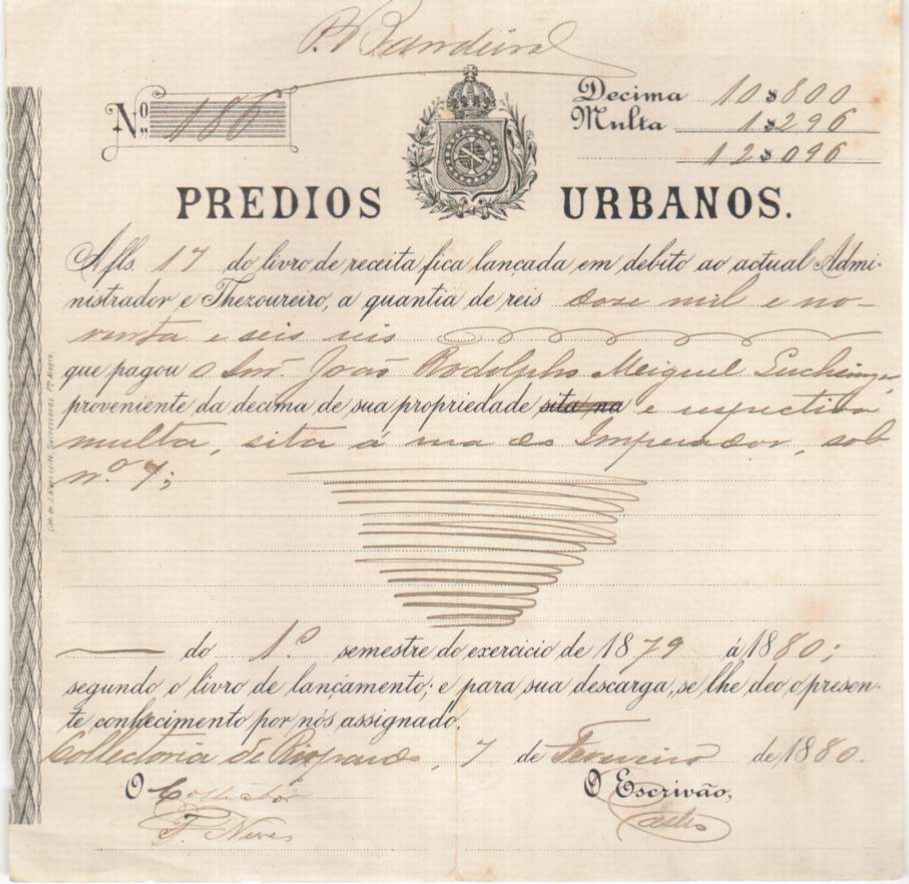 P. Bandeira
Nº 186
Decima 10$800
Multa 1$296
12$096
PREDIOS URBANOS.
A fls. 17 do livro de receita fica lançada em debito ao actual Admi-
nistrador e Thezoureiro, a quantia de reis doze mil e no-
venta e seis reis
que pagou o Snr. João Rodolpho Meiguel
proveniente da decima de sua propriedade sita na e respectiva
multa, sita á rua do Imperador, sob
nº 7;
do 1º semestre do exercicio de 1879 á 1880;
segundo o livro de lançamento; e para sua descarga, se lhe deo o presen-
te conhecimento por nós assignado.
Collectoria de Riopardo, 7 de Fevereiro de 1880.
O Collector O Escrivão,
F. Neves